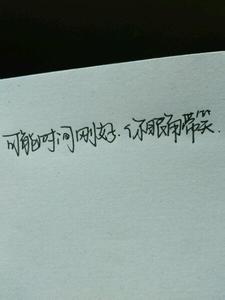 可能时间刚好.你眼角带笑.